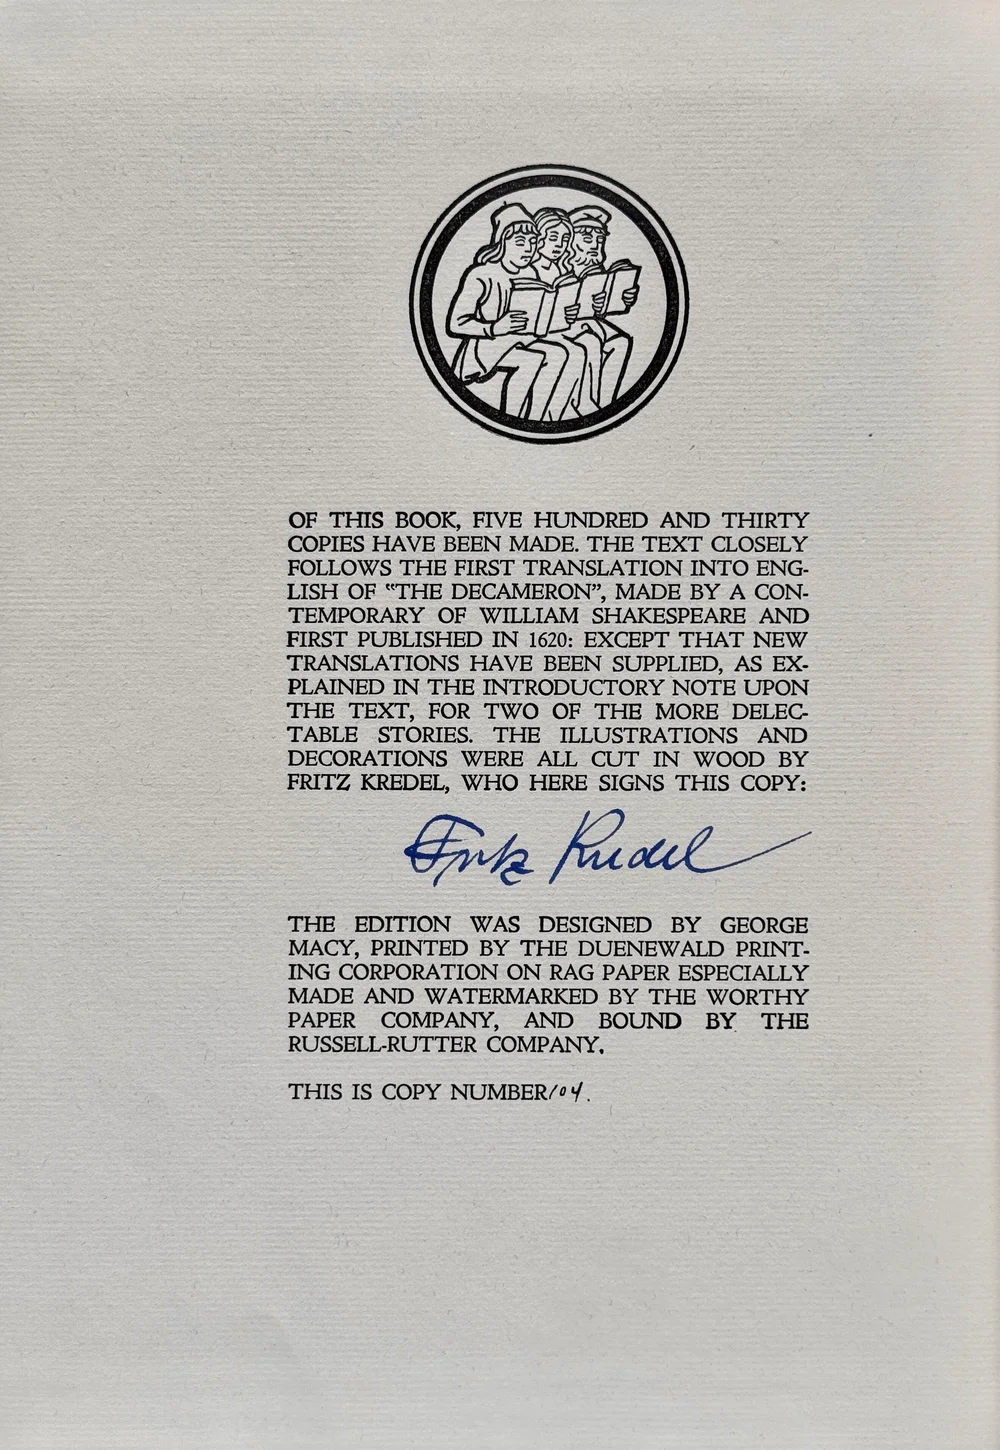 OF THIS BOOK, FIVE HUNDRED AND THIRTY
COPIES HAVE BEEN MADE. THE TEXT CLOSELY
FOLLOWS THE FIRST TRANSLATION INTO ENG-
LISH OF “THE DECAMERON”, MADE BY A CON-
TEMPORARY OF WILLIAM SHAKESPEARE AND
FIRST PUBLISHED IN 1620: EXCEPT THAT NEW
TRANSLATIONS HAVE BEEN SUPPLIED, AS EX-
PLAINED IN THE INTRODUCTORY NOTE UPON
THE TEXT, FOR TWO OF THE MORE DELEC-
TABLE STORIES. THE ILLUSTRATIONS AND
DECORATIONS WERE ALL CUT IN WOOD BY
FRITZ KREDEL, WHO HERE SIGNS THIS COPY:
Fritz Kredel
THE EDITION WAS DESIGNED BY GEORGE
MACY, PRINTED BY THE DUENEWALD PRINT-
ING CORPORATION ON RAG PAPER ESPECIALLY
MADE AND WATERMARKED BY THE WORTHY
PAPER COMPANY, AND BOUND BY THE
RUSSELL-RUTTER COMPANY.
THIS IS COPY NUMBER 104.